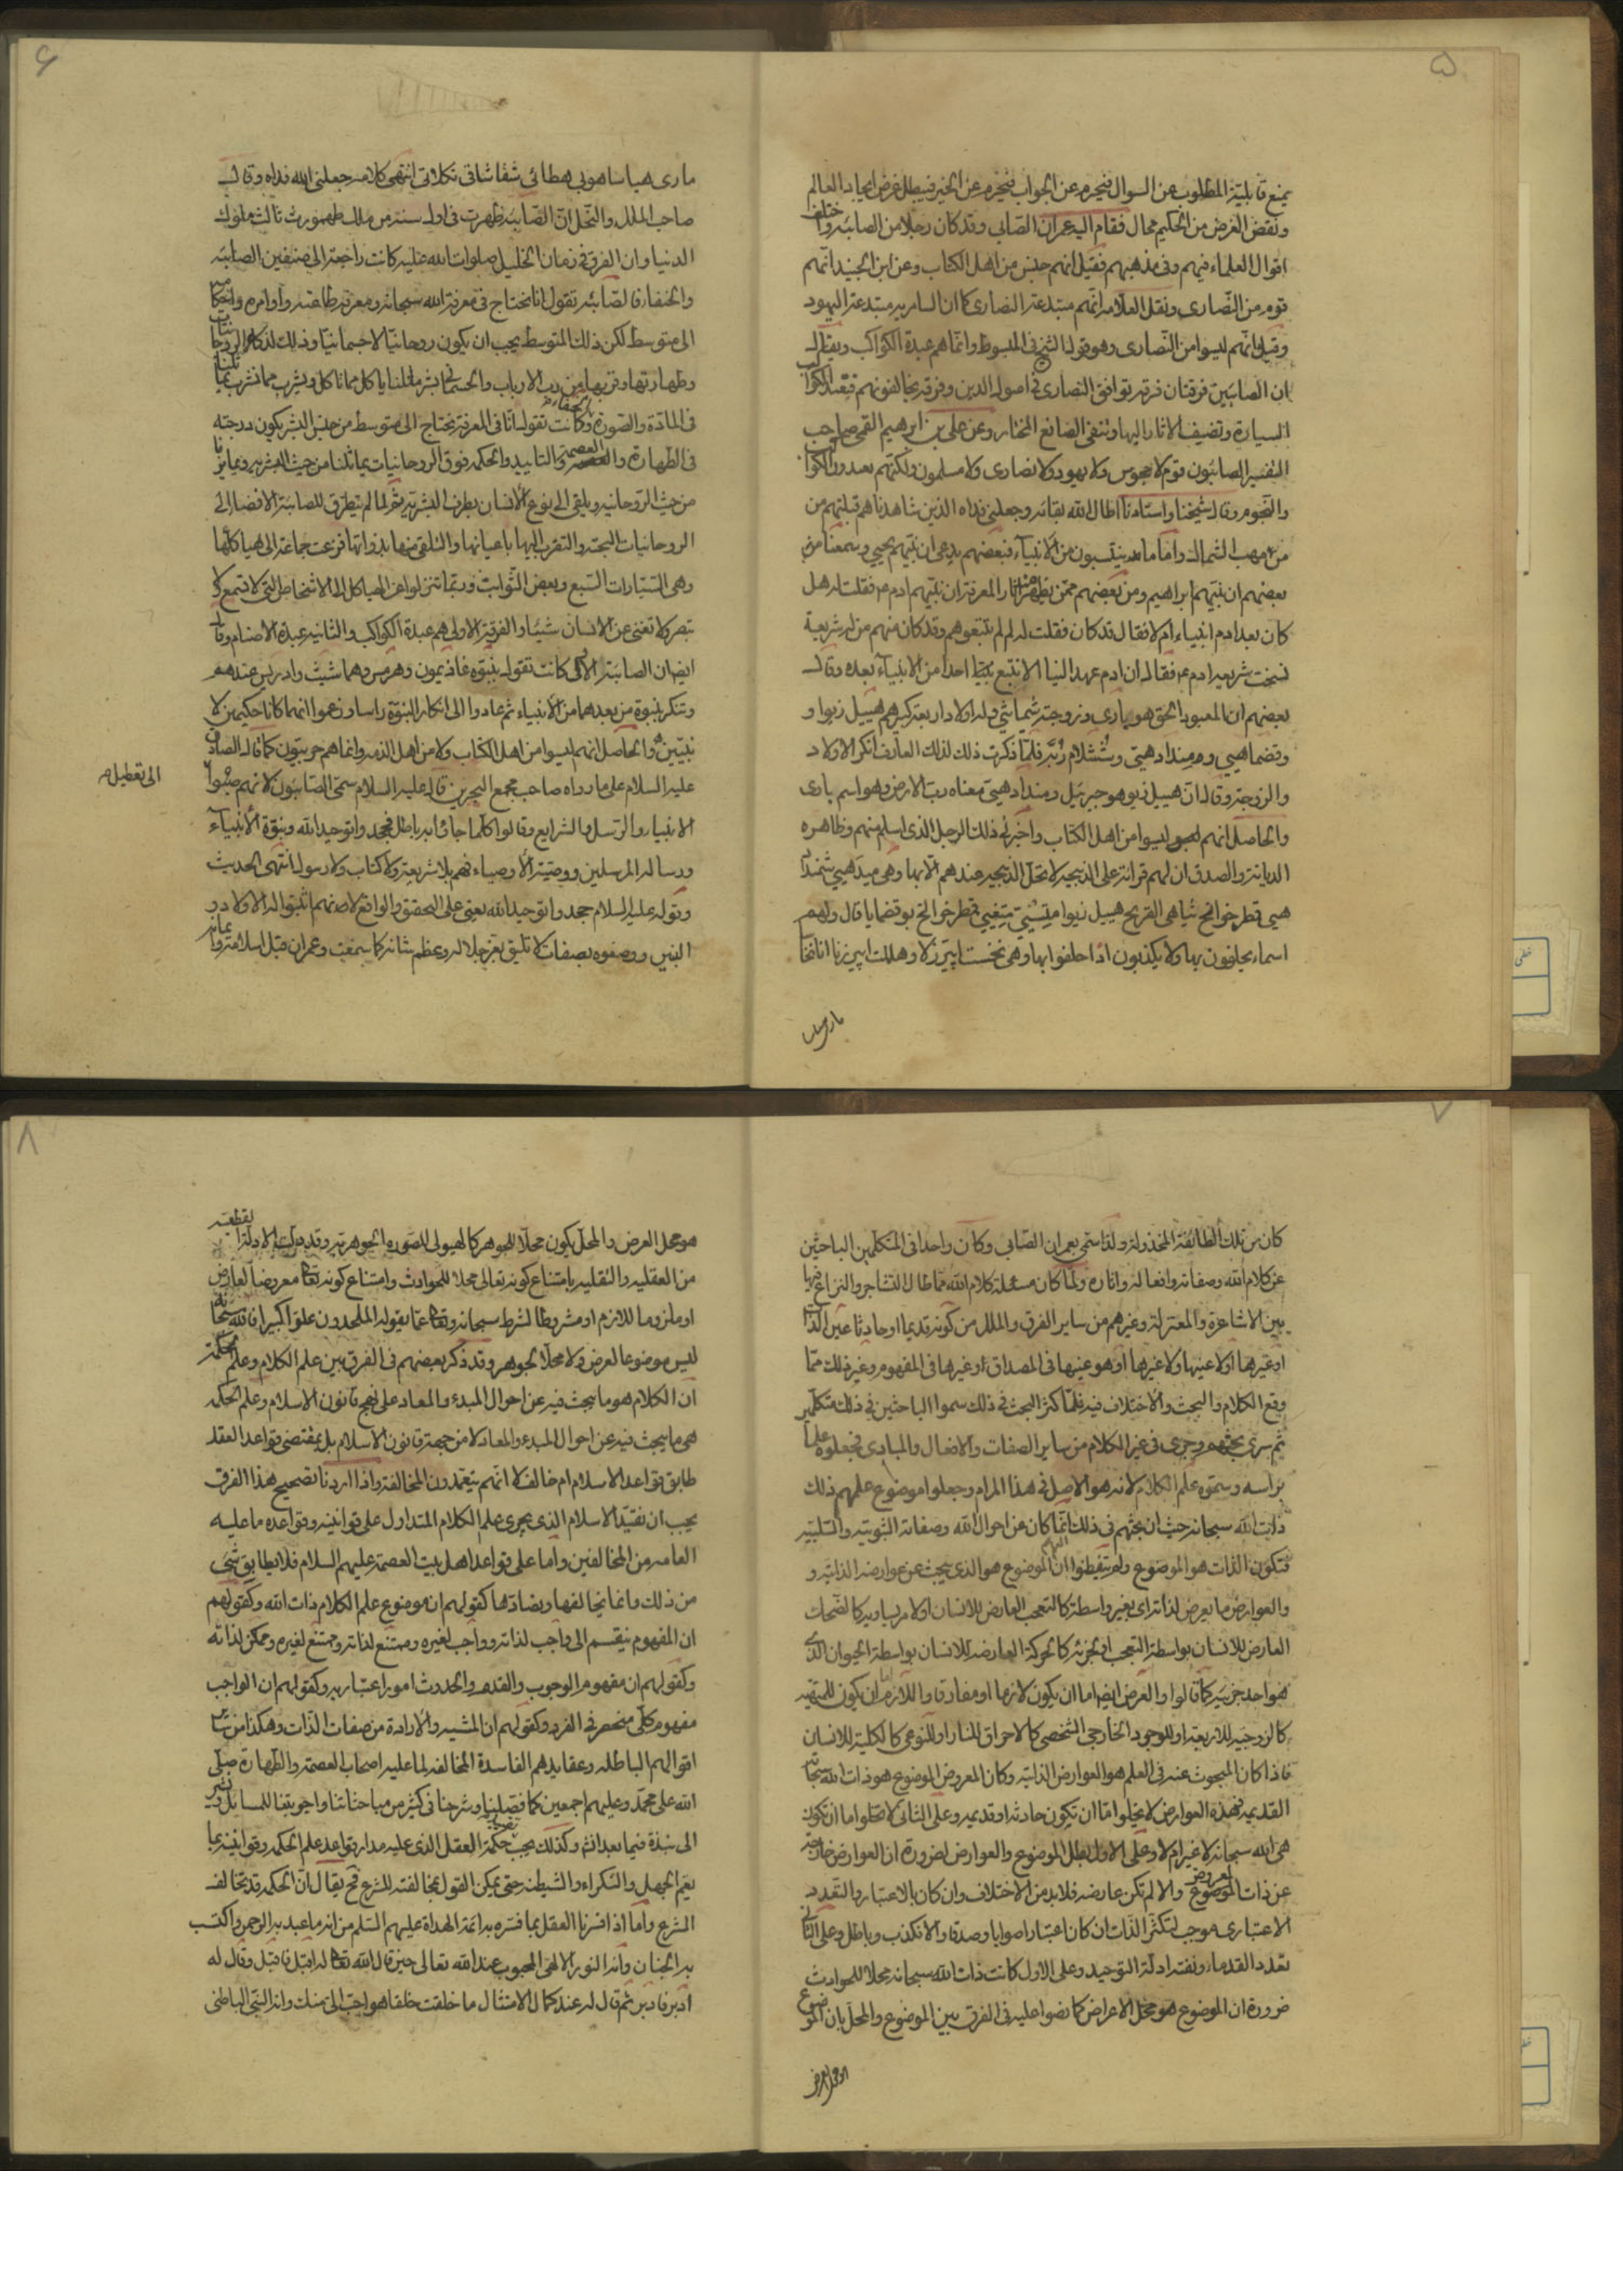 ۵
يمنع قابلية المطلوب عن السوال فيحرم عن الجواب فيحرم عن الخير فيبطل غرض ايجاد العالم
ونقض الغرض من الحكيم محال فقام اليه عمران الصابي وقد كان رجلا من الصابئه واختلف
اقوال العلماء فيهم وفي مذهبهم فقيل انهم جنس من اهل الكتاب وعن ابن الجنيد انهم
قوم من النصارى ونقل العلامه انهم مبتدعة النصارى كما ان السامريه مبتدعة اليهود
وقيل انهم ليسوا من النصارى وهو قول الشيخ في المبسوط وانما هم عبدة الكواكب ويقال
ان الصابئين فرقتان فرقة توافق النصارى في اصول الدين وفرقة يخالفونهم فتعبد الكواكب
السيارة وتضيف الاثار اليها وتنفي الصانع المختار وعن علي بن ابرهيم القمي صاحب
التفسير الصابئون قوم لا مجوس ولا يهود ولا نصارى ولا مسلمون ولكنهم يعبدون الكواكب
والنجوم وقال شيخنا واستادنا اطال الله بقائه وجعلني فداه الذين شاهدناهم قبلتهم من
مهب الشمال واما ما ينتسبون من الانبياء فبعضهم يدعي ان نبيهم يحيى وسمعنا من
بعضهم ان نبيهم ابراهيم ومن بعضهم ممن يظهر اثار المعرفة ان نبيهم ادم ع فقلت له هل
كان بعد ادم انبياء ام لا فقال قد كان فقلت له لم لم تتبعوهم وقد كان منهم من له شريعة
نسخت شريعة ادم ع فقال ان ادم عهد الينا الا نتبع نبيا احدا من الانبياء بعده وقال
بعضهم ان المعبود الحق هو ياري وزوجته شماشي وله اولاد اربعة كبيرهم هيبيل زيوا و
وتضماهيي ومنداد هيي وشلام ربّه فلمّا ذكرت ذلك لذلك العارف انكر الاولاد
والزوجة وقال ان هيبيل زيو هو جبرئيل ومنداد هيي معناه رب الارض وهو اسم ياري
والحاصل انهم ليسوا من اهل الكتاب واخبرني ذلك الرجل الذي اسلم منهم وظاهره
الديانة والصدق ان لهم قرائة على الذبيحه لا تحل الذبيحه عندهم الا بها وهي
هيي قطرخوا هيبيل زيوا قطرخوا قال ولهم
اسماء يحلفون بها ولا يكذبون اذا حلفوا بها وهي
۶
ماري هيا انتهى كلامه جعلني الله فداه وقال
صاحب الملل والنحل ان الصابئه ظهرت في اول سنة من ملك طهمورث ثالث ملوك
الدنيا وان الفرق في زمان الخليل صلوات الله عليه كانت راجعة الى صنفين الصابئه
والحنفاء فالصابئه تقول انا نحتاج في معرفة الله سبحانه ومعرفة طاعته واوامره واحكامه
الى متوسط لكن ذلك المتوسط يجب ان يكون روحانيا لا جسمانيا وذلك لذكاء الروحانيات
وطهارتها وقربها من رب الارباب والجسماني بشر مثلنا ياكل مما ناكل ويشرب مما نشرب يماثلنا
في المادة والصورة وكانت الحنفاء تقول انا في المعرفة نحتاج الى متوسط من جنس البشر يكون درجته
في الطهارة والعصمة والتاييد والحكمه فوق الروحانيات يماثلنا من حيث البشريه ويمايزنا
من حيث الروحانيه ويلقي الى نوع الانسان بطرف البشريه ثم لما لم يتطرق للصابئة الاقتصار الى
الروحانيات البحته والتقرب اليها باعيانها والتلقي منها بذواتها فزعت جماعة الى هياكلها
وهي السيارات السبع وبعض الثوابت وربما تنزلوا عن الهياكل الى الاشخاص التي لا تسمع ولا
تبصر ولا تغني عن الانسان شيئا والفرقة الاولى هم عبدة الكواكب والثانيه عبدة الاصنام وقال
ايضا ان الصابئة الاولى كانت تقول بنبوة عاذيمون وهرمس وهما شيث وادريس عندهم
وتنكر نبوة من بعدهما من الانبياء ثم عادوا الى انكار النبوة راسا وزعموا انهما كانا حكيمين لا
نبيين والحاصل انهم ليسوا من اهل الكتاب ولا من اهل الذمه وانما هم حربيون كما قال الصادق
عليه السلام على ما رواه صاحب مجمع البحرين قال عليه السلام سمي الصابئون لانهم صبوا
الى تعطيل
الانبياء والرسل والشرايع وقالوا كلما جاؤا به باطل فجحدوا توحيد الله ونبوة الانبياء
ورسالة المرسلين ووصية الاوصياء فهم بلا شريعة ولا كتاب ولا رسول انتهى الحديث
وقوله عليه السلام جحدوا توحيد الله يعني على التحقق والواقع لانهم اثبتوا له الاولاد و
البنين ووصفوه بصفات لا تليق بعز جلاله وعظم شانه كما سمعت وعمران قبل اسلامه
۷
كان من تلك الطائفة المخذوله ولذا سمي بعمران الصابي وكان واحدا في المتكلمين الباحثين
عن كلام الله وصفاته وافعاله واثاره ولما كان مسئلة كلام الله مما طال التشاجر والنزاع فيها
بين الاشاعرة والمعتزلة وغيرهم من ساير الفرق والملل من كونه قديما او حادثا عين الذات
او غيرها او لا عينها ولا غيرها او هو عينها في المصداق او غيرها في المفهوم وغير ذلك مما
وقع الكلام والبحث والاختلاف فيه فلما كثر البحث في ذلك سموا الباحثين في ذلك متكلمين
ثم سرى بحثهم وجرى في غير الكلام من ساير الصفات والافعال والمبادي فجعلوه علما
براسه وسموه علم الكلام لانه هو الاصل في هذا المرام وجعلوا موضوع علمهم ذلك
ذات الله سبحانه حيث ان بحثهم في ذلك انما كان عن احوال الله وصفاته الثبوتيه والسلبيه
فتكون الذات هو الموضوع ولم يتفطنوا ان الموضوع هو الذي يبحث عن عوارضه الذاتيه و
والعوارض ما يعرض لذاته اي بغير واسطة كالتعجب العارض للانسان او لامر يساويه كالضحك
العارض للانسان بواسطة التعجب او لجزئه كالحركة العارضة للانسان بواسطة الحيوان الذي
هو احد جزئيه كما قالوا والعرض ايضا اما ان يكون لازما او مفارقا واللازم اما ان يكون للمهيه
كالزوجيه للاربعة او للوجود الخارجي الشخصي كالاحراق للنار او النوعي كالكلية للانسان
فاذا كان المبحوث عنه في العلم هو العوارض الذاتيه وكان المعروض الموضوع هو ذات الله سبحانه
القديمه فهذه العوارض لا يخلوا اما ان تكون حادثه او قديمه وعلى الثاني لا تخلوا اما ان تكون
هي الله سبحانه لا غير ام لا وعلى الاول بطل الموضوع والعوارض لضرورة ان العوارض خارجة
عن ذات الموضوع المعروض والا لم تكن عارضه فلابد من الاختلاف وان كان بالاعتبار والتعدد
الاعتباري موجب لتكثر الذات ان كان اعتبارا صوابا وصدقا والا فكذب وباطل وعلى الثاني
تعدد القدماء ونفته ادلة التوحيد وعلى الاول كانت ذات الله سبحانه محلا للحوادث
ضرورة ان الموضوع هو محل الاعراض كما نصوا عليه في الفرق بين الموضوع والمحل بان الموضوع
هو محل العرض
۸
هو محل العرض والمحل يكون محلا للجوهر كالهيولى للصورة الجوهريه وقد دلت الادلة القطعيه
من العقليه والنقليه بامتناع كونه تعالى محلا للحوادث وامتناع كونه تعالى معروضا لعارض
او ملزوما للازم او مشروطا لشرط سبحانه وتعالى عما يقوله الملحدون علوا كبيرا فالله سبحانه
ليس موضوعا لعرض ولا محلا لجوهر وقد ذكر بعضهم في الفرق بين علم الكلام وعلم الحكمة
ان الكلام هو ما يبحث فيه عن احوال المبدء والمعاد على نهج قانون الاسلام وعلم الحكمه
هي ما يبحث فيه عن احوال المبدء والمعاد لا من جهة قانون الاسلام بل بمقتضى قواعد العقل
طابق قواعد الاسلام ام خالف لا انهم يتعمدون المخالفة واذا اردنا تصحيح هذا الفرق
يجب ان نقيد الاسلام الذي يجرى علم الكلام المتداول على قوانينه وقواعده ما عليه
العامه من المخالفين واما على قواعد اهل بيت العصمة عليهم السلام فلا يطابق شئ
من ذلك وانما يخالفها ويضادها كقولهم ان موضوع علم الكلام ذات الله وكقولهم
ان المفهوم ينقسم الى واجب لذاته وواجب لغيره وممتنع لذاته وممتنع لغيره وممكن لذاته
وكقولهم ان مفهوم الوجوب والقدم والحدوث امور اعتباريه وكقولهم ان الواجب
مفهوم كلي منحصر في الفرد وكقولهم ان المشيه والارادة من صفات الذات وهكذا من ساير
اقوالهم الباطله وعقايدهم الفاسدة المخالفه لما عليه اصحاب العصمة والطهارة صلى
الله على محمد وعليهم اجمعين كما فصلنا وشرحنا في كثير من مباحثاتنا واجوبتنا للمسايل
الى نبذة فيما بعد انشاء وكذلك يجب العقل الذي عليه مدار قواعد علم الحكمه وقوانينه بما
يعم الجهل والنكراء والشيطنه حتى يمكن القول بمخالفته للشرع فح يقال ان الحكمه قد تخالف
الشرع واما اذا فسرنا العقل بما فسره به ائمة الهداة عليهم السلم من انه ما عبد به الرحمن واكتسب
به الجنان وانه النور الالهي المحبوب عند الله تعالى حين قال الله تعالى له اقبل فاقبل وقال له
ادبر فادبر ثم قال له عند كمال الامتثال ما خلقت خلقا هو احب الي منك وانه النبي الباطني